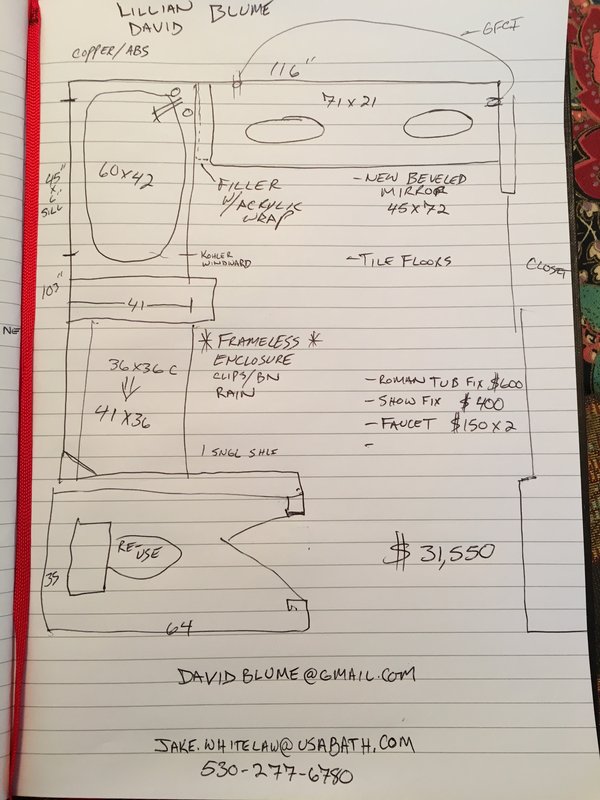 LILLIAN BLUME
DAVID
COPPER/ABS
GFCI
116"
71 x 21
60 x 42
45"
x
6
SILL
FILLER
W/ACRYLIC
WRAP
- NEW BEVELED
MIRROR
45 x 72
KOHLER
WINDWARD
- TILE FLOORS
CLOSET
103"
41
NE
* FRAMELESS *
ENCLOSURE
CLIPS/BN
RAIN
36 x 36 C
41 x 36
- ROMAN TUB FIX $600
- SHOW FIX $400
- FAUCET $150 x 2
-
1 SNGL SHLF
RE-USE
35
64
$ 31,550
DAVIDBLUME@GMAIL.COM
JAKE.WHITELAW@USABATH.COM
530-277-6780